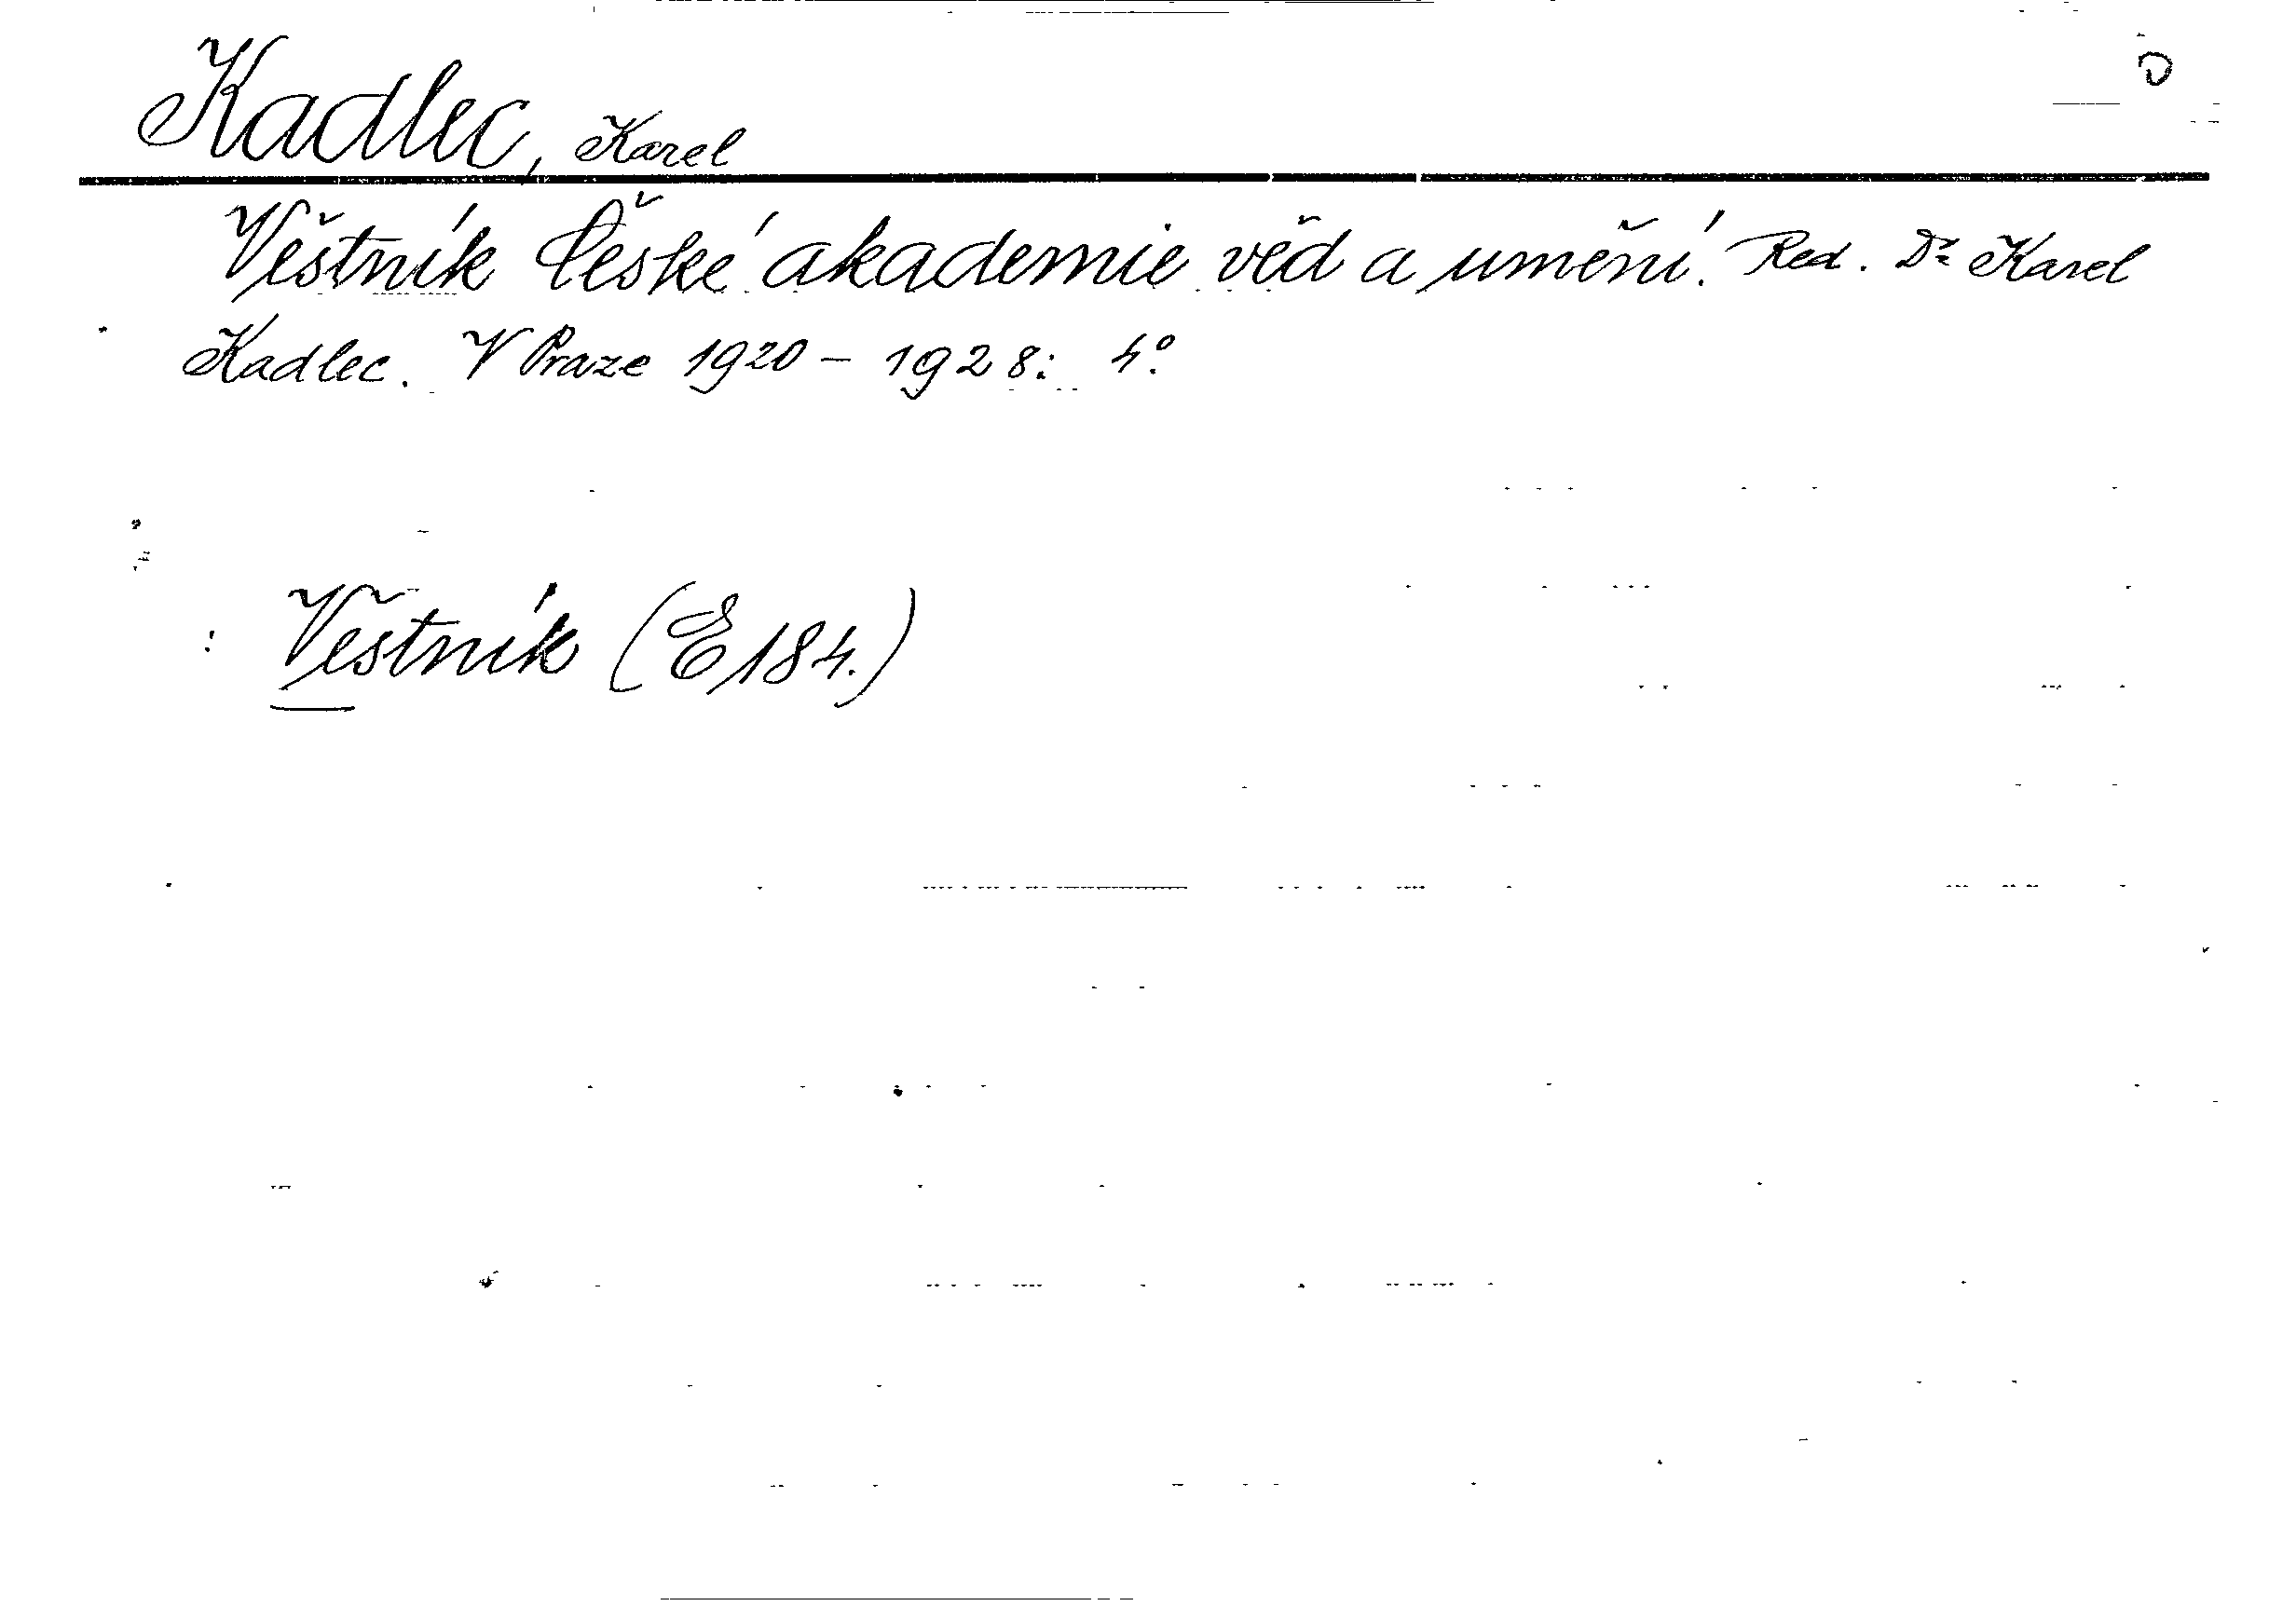 Kadlec, Karel
Věstník České akademie věd a umění. Red. Dr Karel
Kadlec. V Praze 1920 – 1928. 4°.
Věstník (E 184.)